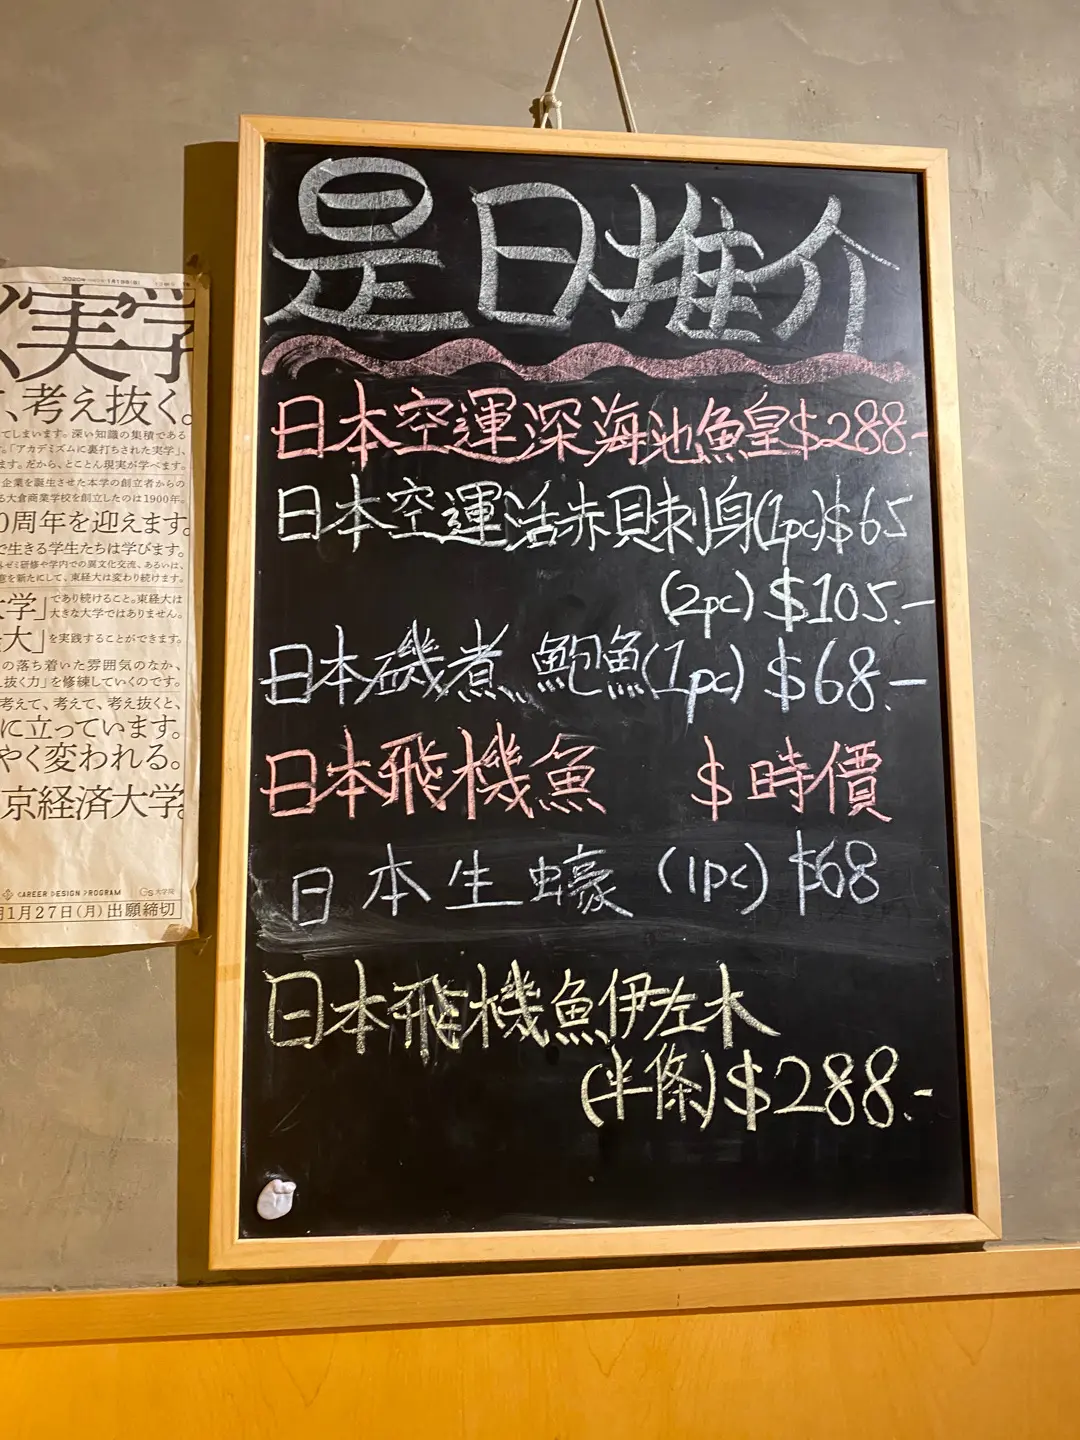 是日推介
日本空運深海池魚皇$288.-
日本空運活赤貝刺身(1pc)$65
(2pc) $105.-
日本磯煮 鮑魚(1pc) $68.-
日本飛機魚 $ 時價
日本生蠔 (1pc) $68
日本飛機魚伊左木
(半條)$288.-
2020年 1月19日
実学
、考え抜く。
てしまいます。深い知識の集積である
。「アカデミズムに裏打ちされた実学」、
ます。だから、とことん現実が学べます。
企業を誕生させた本学の創立者からの
る大倉商業学校を創立したのは1900年。
0周年を迎えます。
で生きる学生たちは学びます。
ゼミ研修や学内での異文化交流、あるいは、
を新たにして、東経大は変わり続けます。
学」であり続けること。東経大は
大きな大学ではありません。
大」を実践することができます。
の落ち着いた雰囲気のなか、
抜く力」を修練していくのです。
考えて、考えて、考え抜くと、
に立っています。
やく変われる。
京経済大学。
CAREER DESIGN PROGRAM
大学院
1月27日(月)出願締切